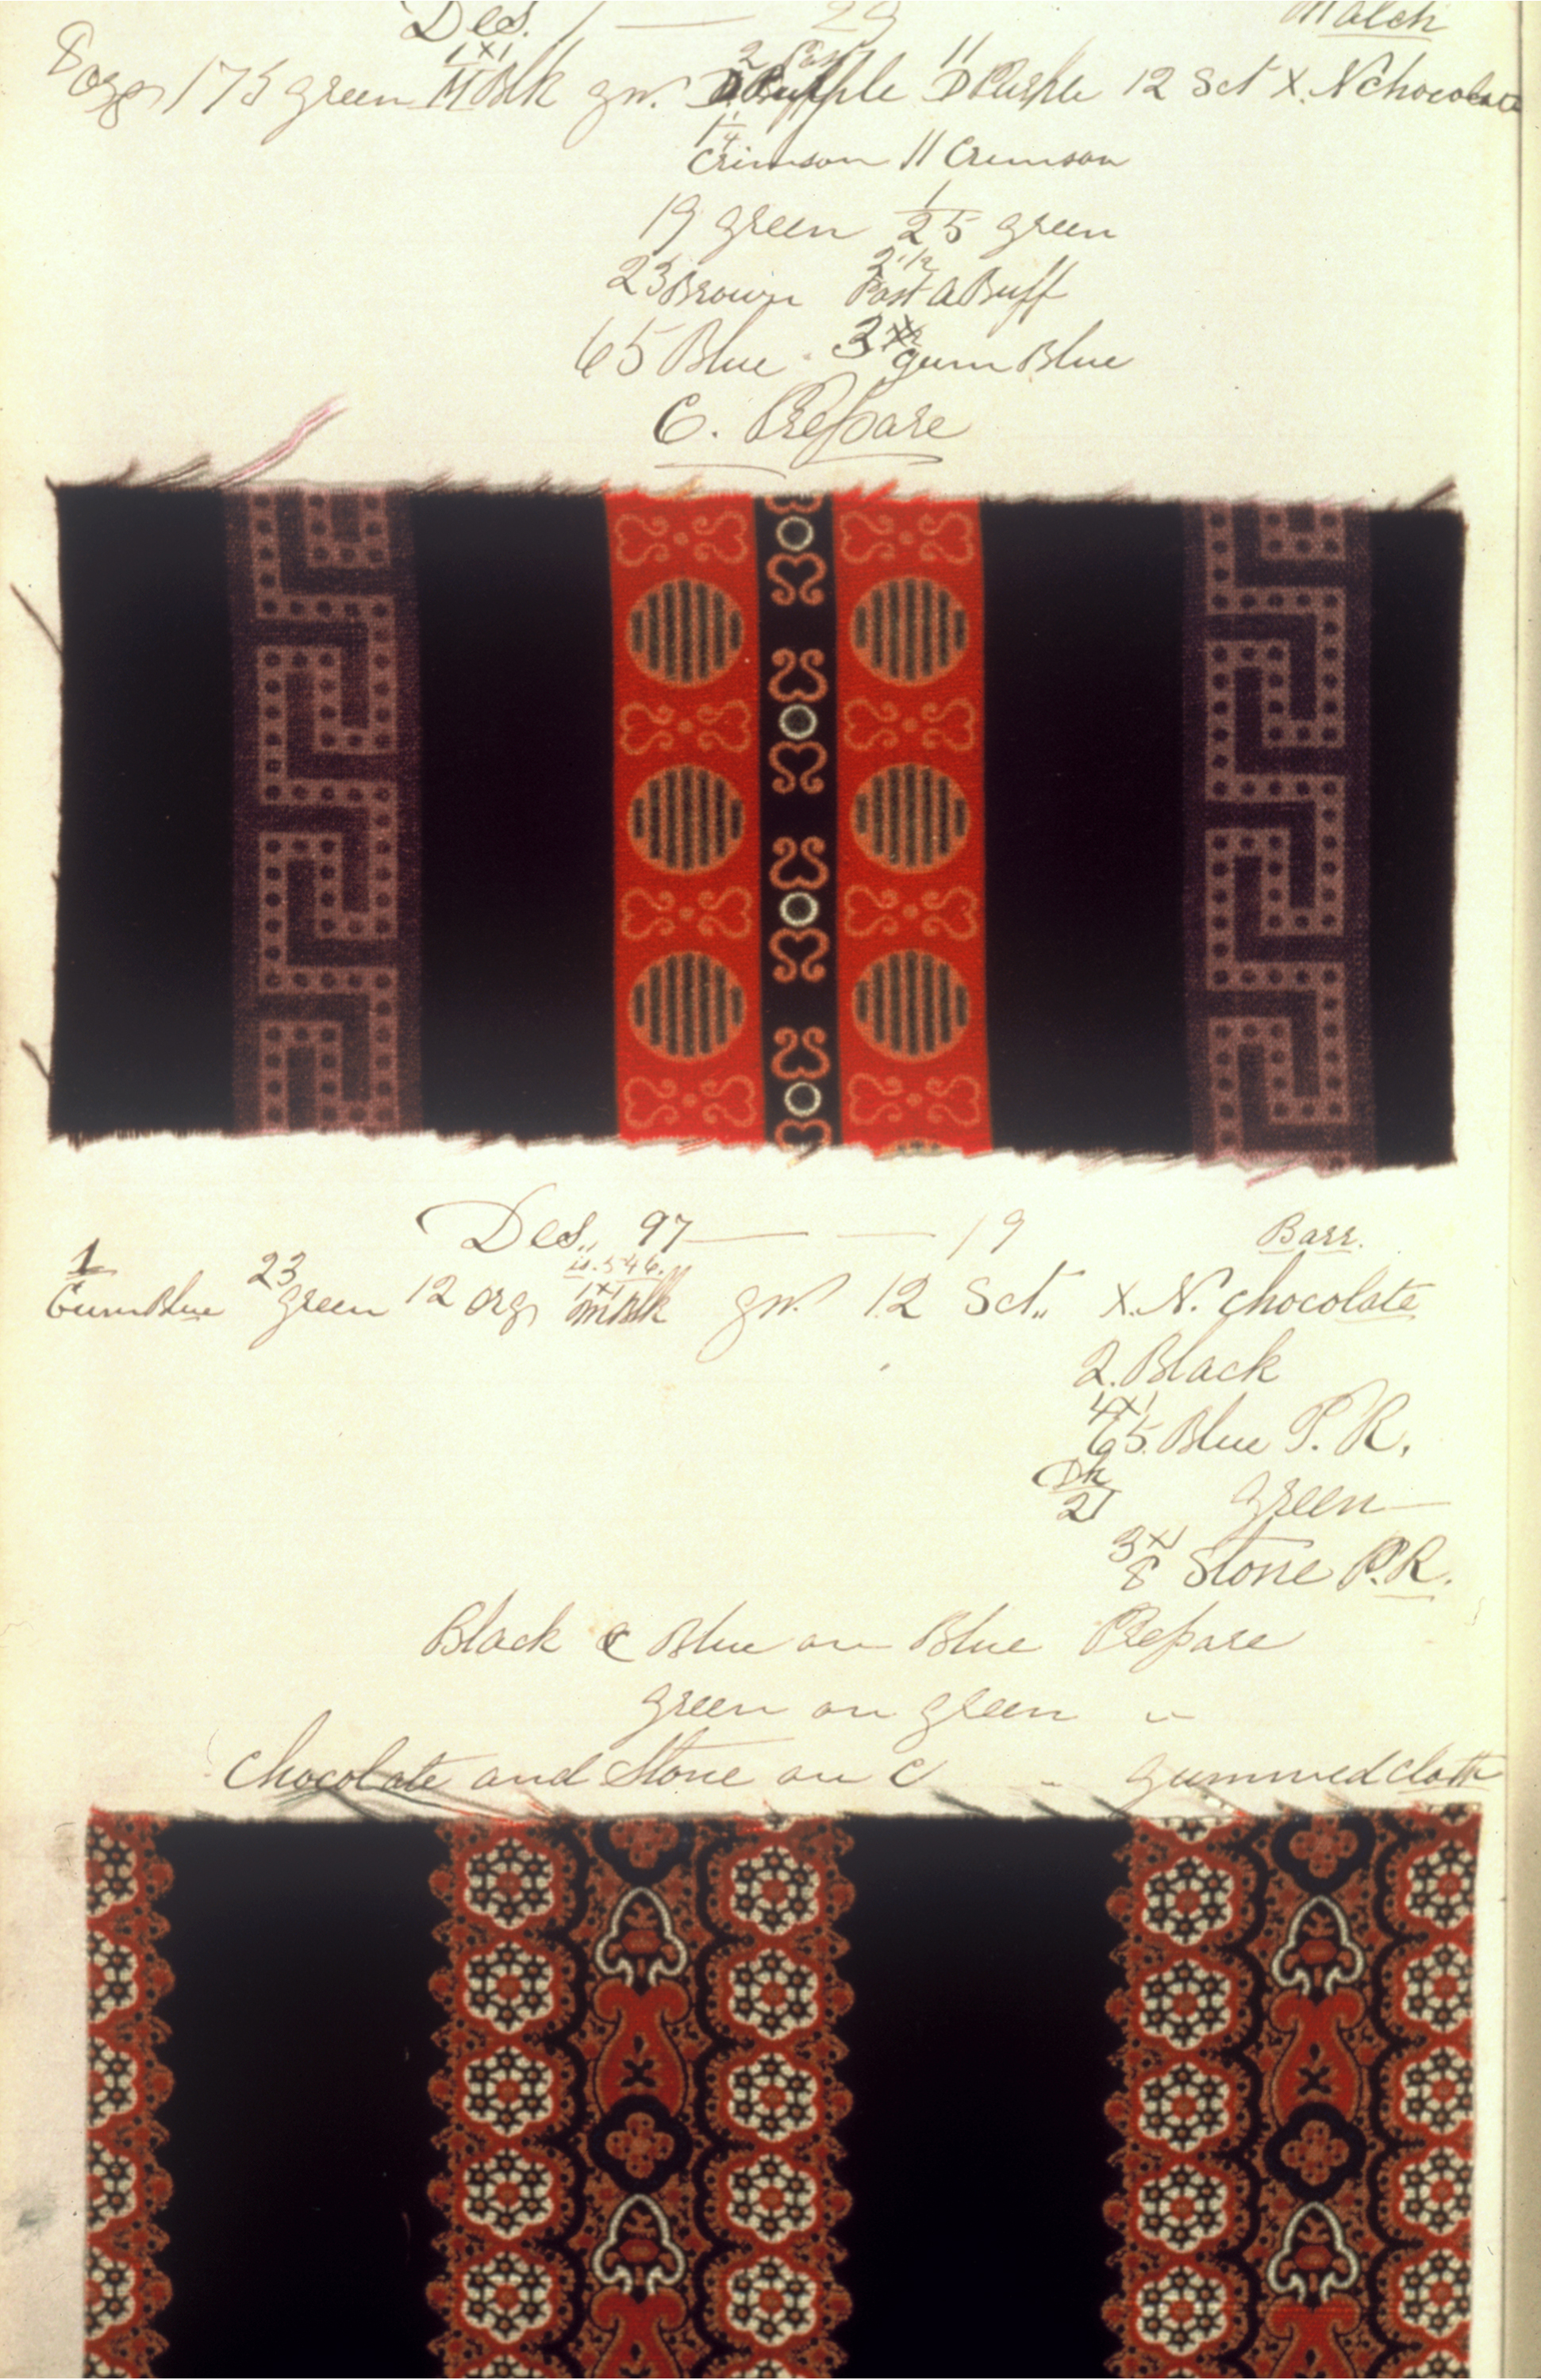 Des. 1 — 29 Match
8 orgs 175 green 1x1 M Blk gn. 2 Purple 11 D Purple 12 Sct X. N chocolate
1/4 Crimson 11 Crimson
19 green 1/25 green
23 Brown 2 1/2 Past A Buff
65 Blue 3 gum Blue
C. Prepare
Des,, 97 — — 19 Barr.
is. 546.
1 Gum Blue 23 green 12 orgs 1x1 m Blk gn. 12 Sct,, X. N. chocolate
2. Black
4x1 65. Blue P. R.
Dk 21 green —
3x1 8 Stone P. R.
Black & Blue on Blue Prepare
green on green "
Chocolate and Stone on C " gummed cloth